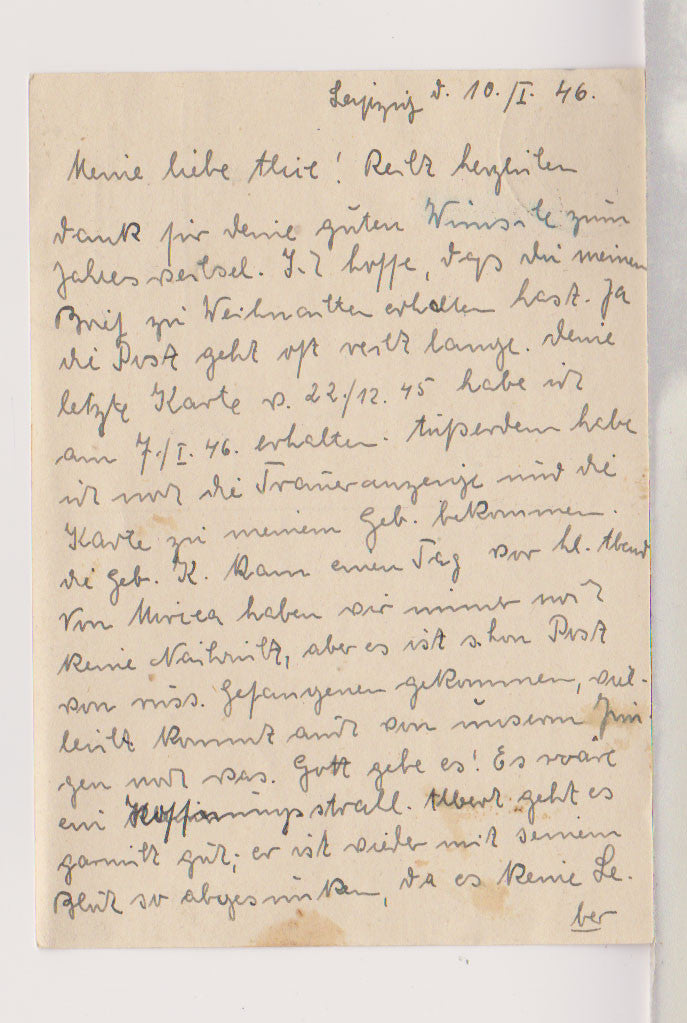 Leipzig d. 10./I. 46.
Meine liebe Recht herzlichen
dank für deine guten Wünsche zum
Jahreswechsel. Ich hoffe, daß du meinen
Brief zu Weihnachten erhalten hast. Ja
die Post geht oft recht lange. deine
letzte Karte v. 22./12. 45 habe ich
am 7./I. 46. erhalten. Außerdem habe
ich noch die Traueranzeige und die
Karte zu meinem Geb. bekommen.
die Geb. K. kam einen Tag vor hl. Abend
Von haben wir immer noch
keine Nachricht, aber es ist schon Post
von russ. Gefangenen gekommen, viel-
leicht kommt auch von unserm Jun-
gen noch was. Gott gebe es! Es wäre
ein Hoffnungsstrall. Albert geht es
garnicht gut; er ist wieder mit seinem
Blut so abgesunken, da es keine Le-
ber